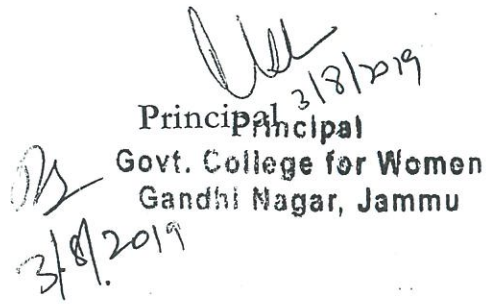 3/8/2019
Principal
Principal
Govt. College for Women
Gandhi Nagar, Jammu
3/8/2019